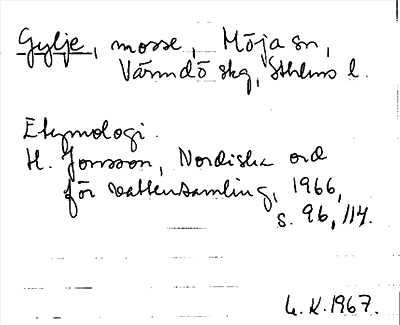 Gylje, mosse, Möja sn,
Värmdö skg, Sthlms l.
Etymologi.
H. Jonsson, Nordiska ord
för vattensamling, 1966,
s. 96, 114.
L. K. 1967.